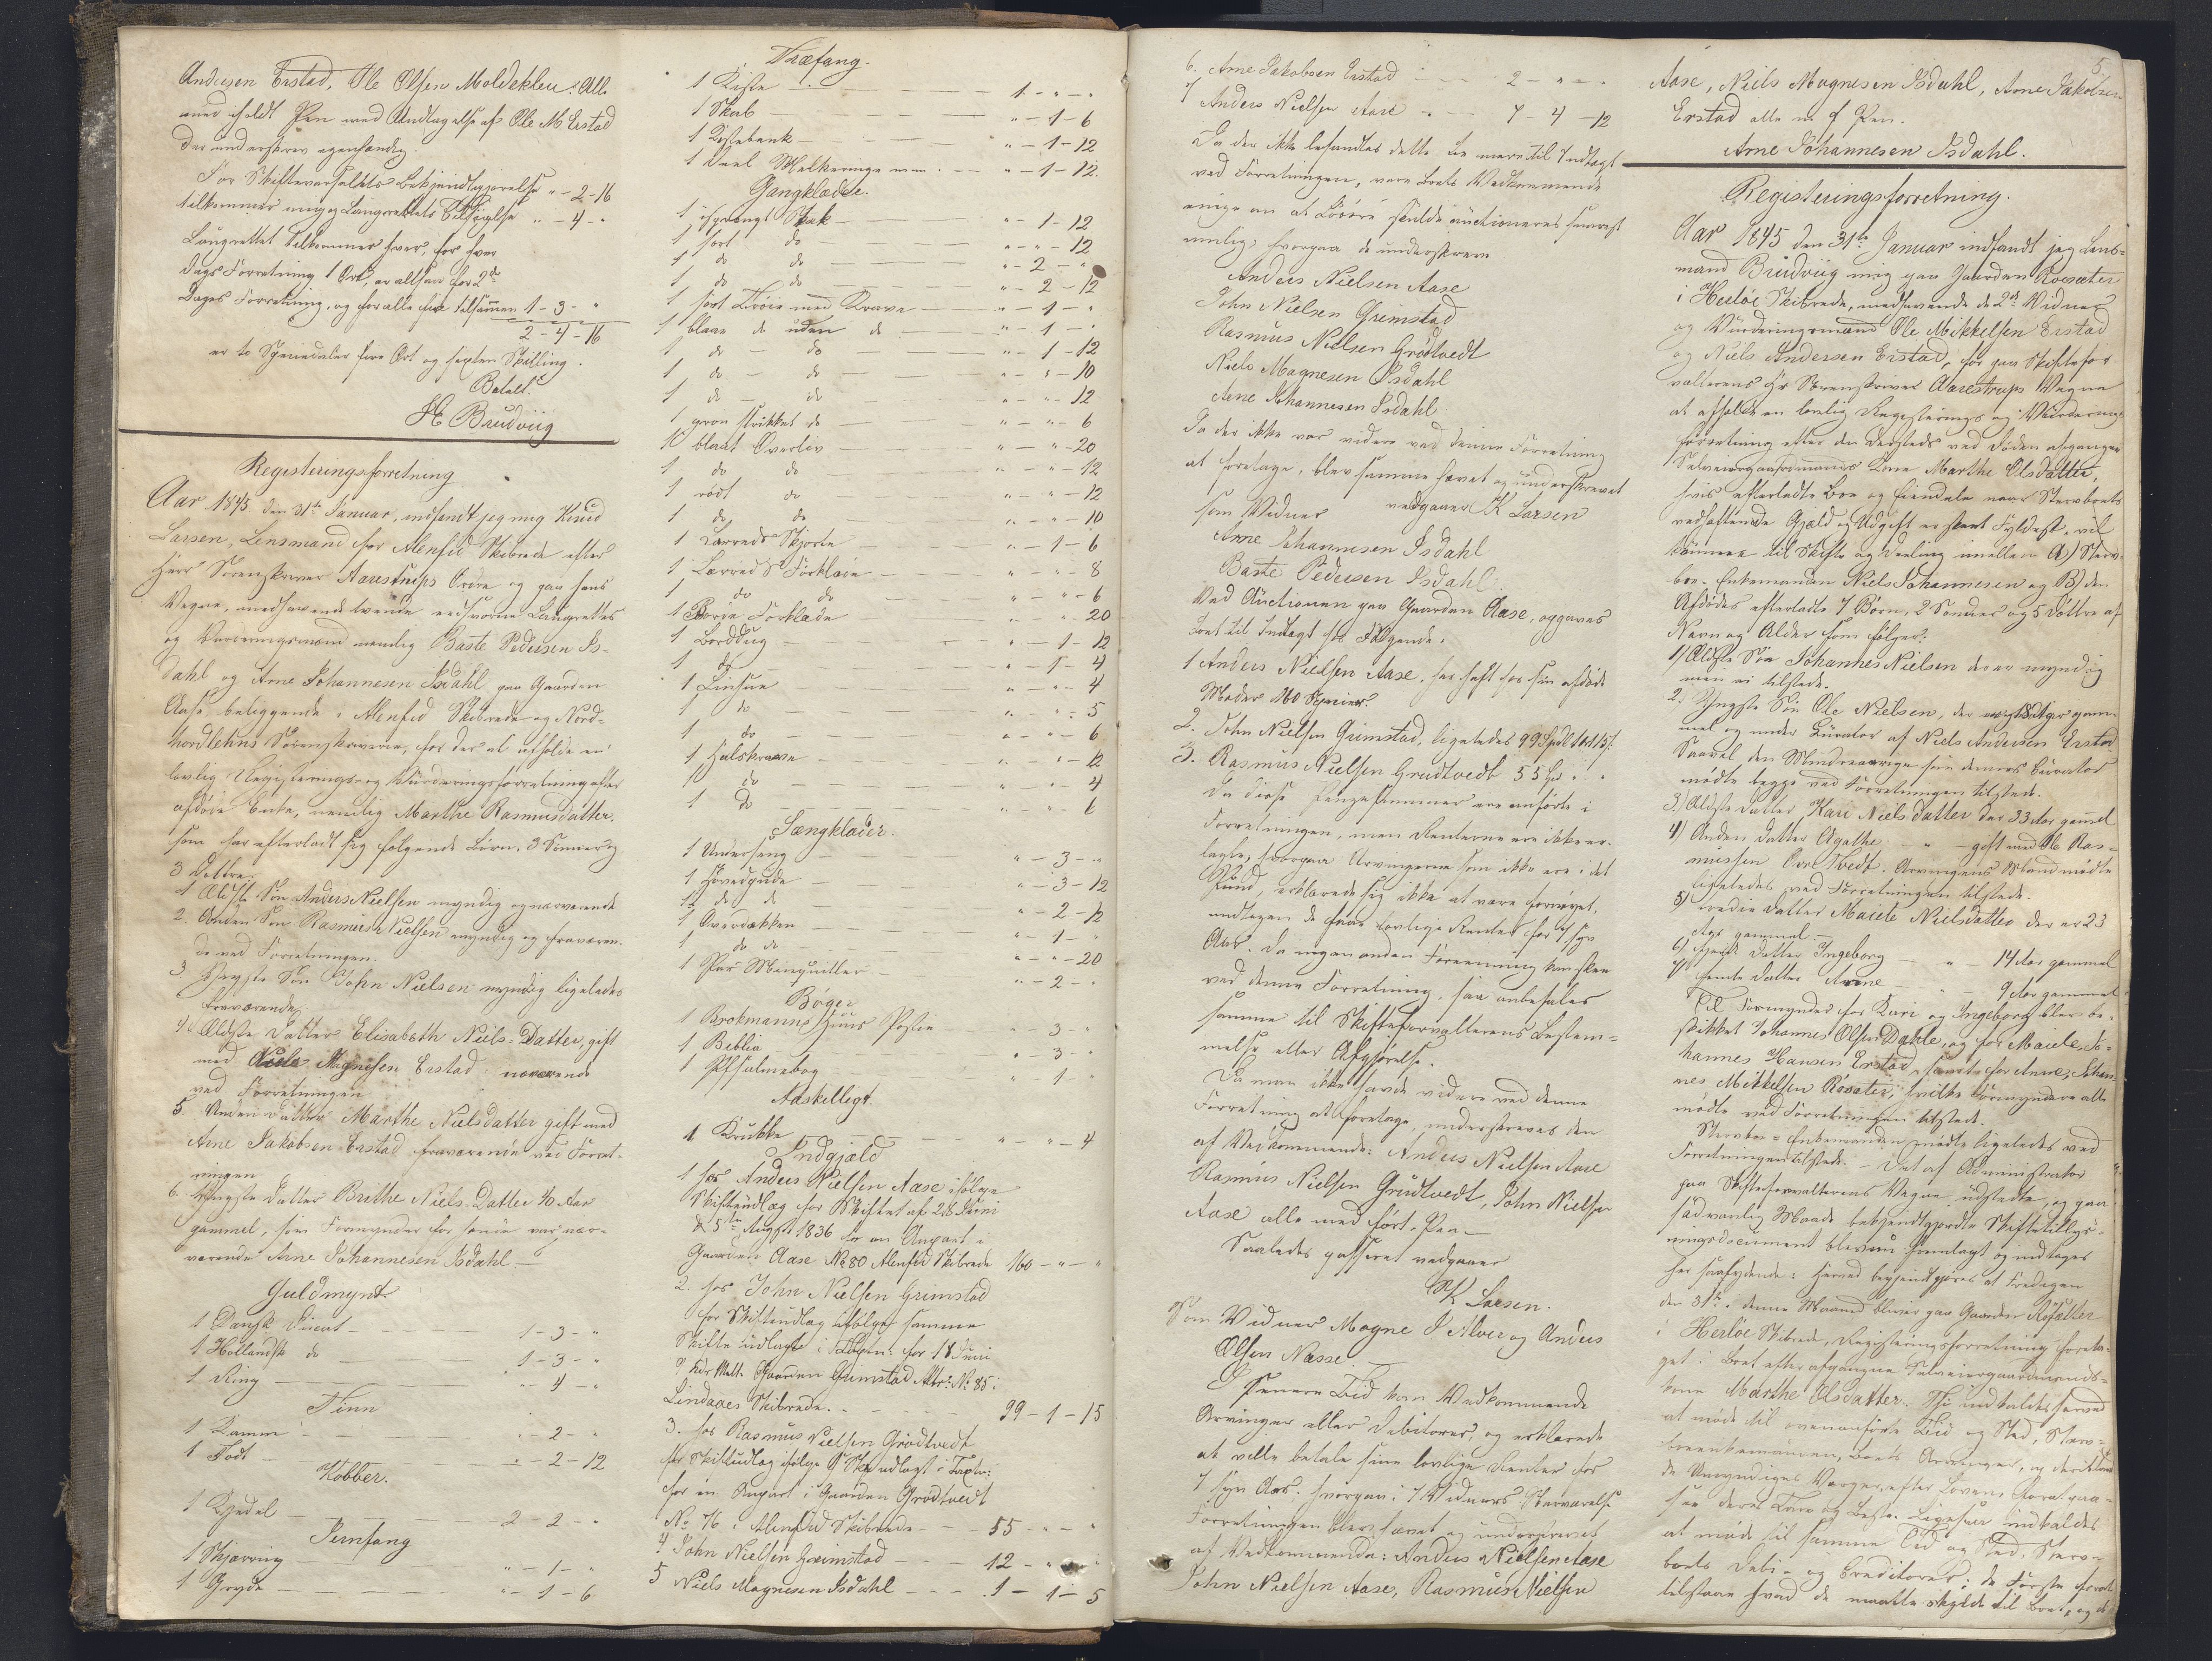 Andersen Erstad, Ole Olsen Moldeklev. Alle
med iholdt Pen med Undtagelse af Ole M Erstad
der underskrev egenhændig.
For Skiftevarselets Bekjendtgjørelse " - 2 - 16
tilkommer mig og Laugrettets " - 4 - "
Laugrettet tilkommer hver, for hver
Dags Forretning 1 Ort, er altsaa for 2de
Dages Forretning, og for alle fire tilsammen 1 - 3 - "
2 - 4 - 16
er to Speciedaler fire Ort og sexten Skilling.
Betalt.
H Brudviig
Registeringsforretning
Aar 1845 den 31te Januar, indfandt jeg mig Knud
Larsen, Lensmand for Alenfid Skibrede efter
Herr Sorenskriver Aarestrups Ordre og paa hans
Vegne, medhavende tvende edsvorne Laugrettes
og Vurderingsmænd nemlig Baste Pedersen Is-
dahl og Arne Johannesen Isdahl paa Gaarden
Aase beliggende i Alenfid Skibrede og Nord-
hordlehns Sorenskriverie, for der at afholde en
lovlig Registerings- og Vurderingsforretning efter
afdøde Enke, nemlig Marthe Rasmusdatter.
som har efterladt sig følgende Børn, 3 Sønner og
3 Døttre.
1 Ældste Søn Anders Nielsen myndig og nærværende
2. Anden Søn Rasmus Nielsen myndig og fraværen-
de ved Forretningen.
3 Yngste Søn John Nielsen myndig ligeledes
fraværende.
4. Ældste Datter Elisabeth Niels-Datter, gift
med Niels Magnesen Erstad nærværende
ved Forretningen
5. Anden Datter Marthe Nielsdatter gift med
Arne Jakobsen Erstad fraværende ved Forret-
ningen
6. Yngste Datter Brithe Niels-Datter 40 Aar
gammel, som Formynder for hende var nær-
værende Arne Johannesen Isdahl —
Guldmynt.
1 Dansk Ducat — 1 - 3 - "
1 Hollandsk do — 1 - 3 - "
1 Ring — " - 4 - "
Tinn
1 Kamme — " - 2 - "
1 Fad — " - 2 - 12
Kobber.
1 Kjedel — 2 - 2 - "
Jernfang
1 Skjæring — " - 1 - "
1 Gryde — " - 1 - 6
Træfang.
1 Kiste — 1 - " - "
1 Skab — " - 1 - 6
1 Kistebænk — " - 1 - 12
1 Deel Melkeringe mm. — " - 1 - 12.
Gangklæder.
1 Stak — " - 1 - 12
1 sort do — " - " - 12
1 do do — " - 2 - "
1 do do — " - 2 - 12
1 sort Trøie med Krave — " - 1 - "
1 blaae do uden do — " - 1 - "
1 do - do — " - 1 - 12
1 do - do — " - " - 10
1 do - do — " - " - 12
1 grøn strikket do — " - " - 6
1 blaat Overliv — " - " - 20
1 do do — " - " - 12
1 rødt do — " - " - 12
1 do do — " - " - 10
1 Lærreds Skjorte — " - 1 - 6
1 Lærreds Forklæde — " - " - 8
1 do do — " - " - 6
1 Forklæde — " - " - 20
1 Borddug — " - 1 - 12
1 do — " - 1 - 4
1 Linhue — " - " - 4
1 do — " - " - 5
1 do — " - " - 6
1 Halskrave — " - " - 12
1 do — " - " - 4
1 do — " - " - 6
Sængklæder.
1 Underseng — " - 3 - "
1 Hovedpude — " - 3 - 12
1 do do — " - 2 - 12
1 Overdækken — " - 1 - "
1 do do — " - " - 20
1 Par — " - 2 - "
Bøger
1 Brokmanns Huus Postil " - 3 - "
1 Biblia " - 3 - "
1 Psalmebog — " - 1 - "
Adskilligt.
1 Krukke — " - " - 4
Indgjæld
1 hos Anders Nielsen Aase ifølge
Skifteudlæg for Skiftet af 28 Juni
& 5te August 1836 for en Anpart i
Gaarden Aase No 80 Alenfid Skibrede 160 - " - "
2. hos John Nielsen Grimstad
for Skifteudlæg ifølge samme
Skifte udlagte i for 18 Juni
Gaarden Grimstad Matr: No 85 i
Lindaaes Skibrede. — 99 - 1 - 15
3. hos Rasmus Nielsen Grodtvedt
for Skifteudlæg ifølge udlagt i
for en Anpart i Gaarden Grodtvedt
No 76 i Alenfid Skibrede — 55 - " - "
4. John Nielsen Grimstad — 12 - " - "
5 Niels Magnesen Isdahl — 1 - 1 - 5
6. Arne Jakobsen Erstad — 2 - " - "
7 Anders Nielsen Aase — 7 - 4 - 12
Da der ikke befandtes dette Boe mere til Indtægt
ved Forretningen, vare Boets Vedkommende
enige om at Løsøre skulde auctioneres snarest
mulig, hvorpaa de underskreve
Anders Nielsen Aase
John Nielsen Grimstad
Rasmus Nielsen Grodtvedt
Niels Magnesen Isdahl
Arne Johannesen Isdahl
Da der ikke var videre ved denne Forretning
at foretage, blev samme hævet og underskrevet
som Vidner vedgaaer K Larsen
Arne Johannesen Isdahl
Baste Pedersen Isdahl
Ved Auctionen paa Gaarden Aase, opgaves
Boet til Indtægt hos Følgende.
1 Anders Nielsen Aase, har havt hos sin afdøde
Moder 160 Specier.
2. John Nielsen Grimstad, ligeledes 99 Spdl 1 ort 15 s.
3. Rasmus Nielsen Grudtvedt 55 Spd " "
Da disse Pengesummer ere anførte i
Forretningen, men Renterne ere ikke er-
lagte, hvorpaa Arvingerne som ikke ere i det
erklærede sig ikke at være fornøyet,
undtagen de faae lovlige Renter for 7 syv
Aar. Da ingen anden Forening kan skee
ved denne Forretning, saa anbefales
samme til Skifteforvalterens Bestem-
melse eller Afgjørelse.
Da man ikke havde videre ved denne
Forretning at foretage, underskreves den
af Vedkommende: Anders Nielsen Aase
Rasmus Nielsen Grudtvedt, John Nielsen
Aase alle med ført Pen
Saaledes passeret vedgaaer
K Larsen.
Som Vidner Mogne I Alver og Anders
Olsen Næsse. —
Senere Tid kom Vedkommende
Arvinger eller Debitorer, og erklærede
at ville betale sine lovlige Renter for
7 syv Aar, hvorpaa i 7 Vidners Overværelse
Forretningen blev hævet og underskrevet
af Vedkommende: Anders Nielsen Aase
John Nielsen Aase, Rasmus Nielsen
5
Aase, Niels Magnesen Isdahl, Arne Jakobsen
Erstad alle m f Pen.
Arne Johannesen Isdahl.
Registeringsforretning.
Aar 1845 den 31te Januar indfandt jeg Lens-
mand Brudviig mig paa Gaarden Rossæter
i Herløe Skibrede, medhavende de 2de Vidner
og Vurderingsmænd Ole Mikkelsen Erstad
og Niels Andersen Erstad, for paa Skiftefor
valterens Hr Sorenskriver Aarestrups Vegne
at afholde en lovlig Registerings og Vurderings
forretning efter den dersteds ved Døden afgangne
Selveiergaardmands Kone Marthe Olsdatter,
hvis efterladte Boe og Eiendele naar Stervboets
vedhæftende Gjæld og Udgift er skeet Fyldest, vil
komme til Skifte og Deeling imellem A) Sterv-
boe-Enkemanden Niels Johannesen og B) den
Afdødes efterladte 7 Børn, 2 Sønner og 5 Døttre af
Navn og Alder som følger:
1) Ældste Søn Johannes Nielsen der er myndig
men ei tilstede.
2. Yngste Søn Ole Nielsen, der er 18 Aar gam-
mel og under Curator af Niels Andersen Erstad
Saavel den Mindreaarige som dennes Curator
mødte begge ved Forretningen tilstede.
3) Ældste Datter Kari Nielsdatter der 33 Aar gamel
4) Anden Datter Agathe — " — gift med Ras-
mussen Tvedt. Arvingens Mand mødte
ligeledes ved Forretningen tilstede.
5) Tredie Datter Maiete Nielsdatter der er 23
Aar gammel. —
6) Fjerde Datter Ingeborg — " — 14 Aar gammel
7) Femte Datter Anne — " — 9 Aar gammel
Til Formynder for Kari og Ingeborg blev be-
skikket Johannes Olsen Dahle, og for Maiete Jo-
hannes Hansen Erstad, samt for Anne, Johan-
nes Mikkelsen Rosæter, hvilke Formyndere alle
mødte ved Forretningen tilstede.
Stervboe-Enkemanden mødte ligeledes ved
Forretningen tilstede. — Det af Administrator
paa Skifteforvalterens Vegne udstedte, og paa
sædvanlig Maade bekjendtgjordte Skiftetillys-
ningsdocument blev nu fremlagt og indtages
her saalydende: Herved bekjendtgjøres at Fredagen
den 31te denne Maaned bliver paa Gaarden Rossætter
i Herløe Skibrede, Registeringsforretning foreta-
get i Boet efter afgangne Selveiergaardmands-
kone Marthe Olsdatter. Thi indkaldes herved
at møde til ovenanførte Tid og Sted, Sterv-
boenkemanden, Boets Arvinger, og deriblandt
de Umyndiges Værger, efter Lovens Forat paa-
see deres Tarv og Beste. Ligesaa indkaldes
at møde til samme Tid og Sted, Sterv-
boets Debi- og Creditorer; de Første forat
tilstaae hvad de maatte skylde til Boet, og de